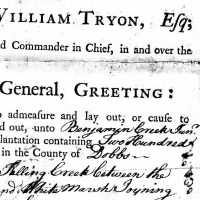 WILLIAM TRYON, Esq;
d Commander in Chief, in and over the
General, GREETING:
o admeasure and lay out, or cause to
d out, unto Benjamin Creek Jun
lantation containing Two Hundred
in the County of Dobbs
Falling Creek between the
nd White Marsh Joyning